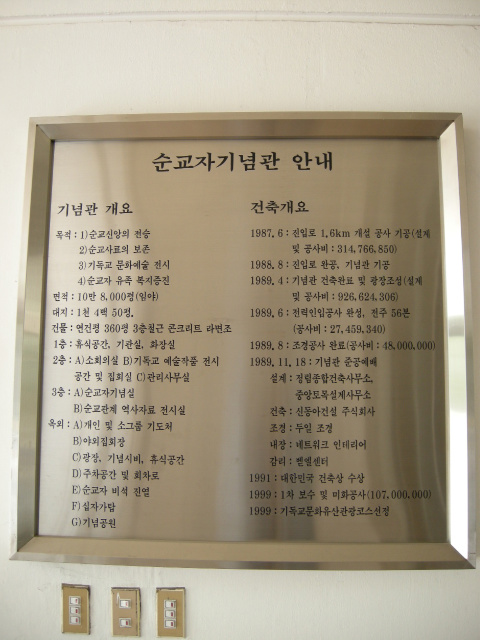 순교자기념관 안내
기념관 개요
목적 : 1)순교신앙의 전승
2)순교사료의 보존
3)기독교 문화예술 전시
4)순교자 유족 복지증진
면적 : 10만 8,000평(임야)
대지 : 1천 4백 50평.
건물 : 연건평 360평 3층철근 콘크리트 라멘조
1층 : 휴식공간, 기관실, 화장실
2층 : A)소회의실 B)기독교 예술작품 전시
공간 및 집회실 C)관리사무실
3층 : A)순교자기념실
B)순교관계 역사자료 전시실
옥외 : A)개인 및 소그룹 기도처
B)야외집회장
C)광장, 기념시비, 휴식공간
D)주차공간 및 회차로
E)순교자 비석 진열
F)십자가탑
G)기념공원
건축개요
1987. 6 : 진입로 1.6km 개설 공사 기공(설계
및 공사비 : 314,766,850)
1988. 8 : 진입로 완공, 기념관 기공
1989. 4 : 기념관 건축완료 및 광장조성(설계
및 공사비 : 926,624,306)
1989. 6 : 전력인입공사 완성, 전주 56본
(공사비 : 27,459,340)
1989. 8 : 조경공사 완료(공사비 : 48,000,000)
1989. 11. 18 : 기념관 준공예배
설계 : 정림종합건축사무소,
중앙토목설계사무소
건축 : 신동아건설 주식회사
조경 : 두일 조경
내장 : 네트워크 인테리어
감리 : 벧엘센터
1991 : 대한민국 건축상 수상
1999 : 1차 보수 및 미화공사(107,000,000)
1999 : 기독교문화유산관광코스선정